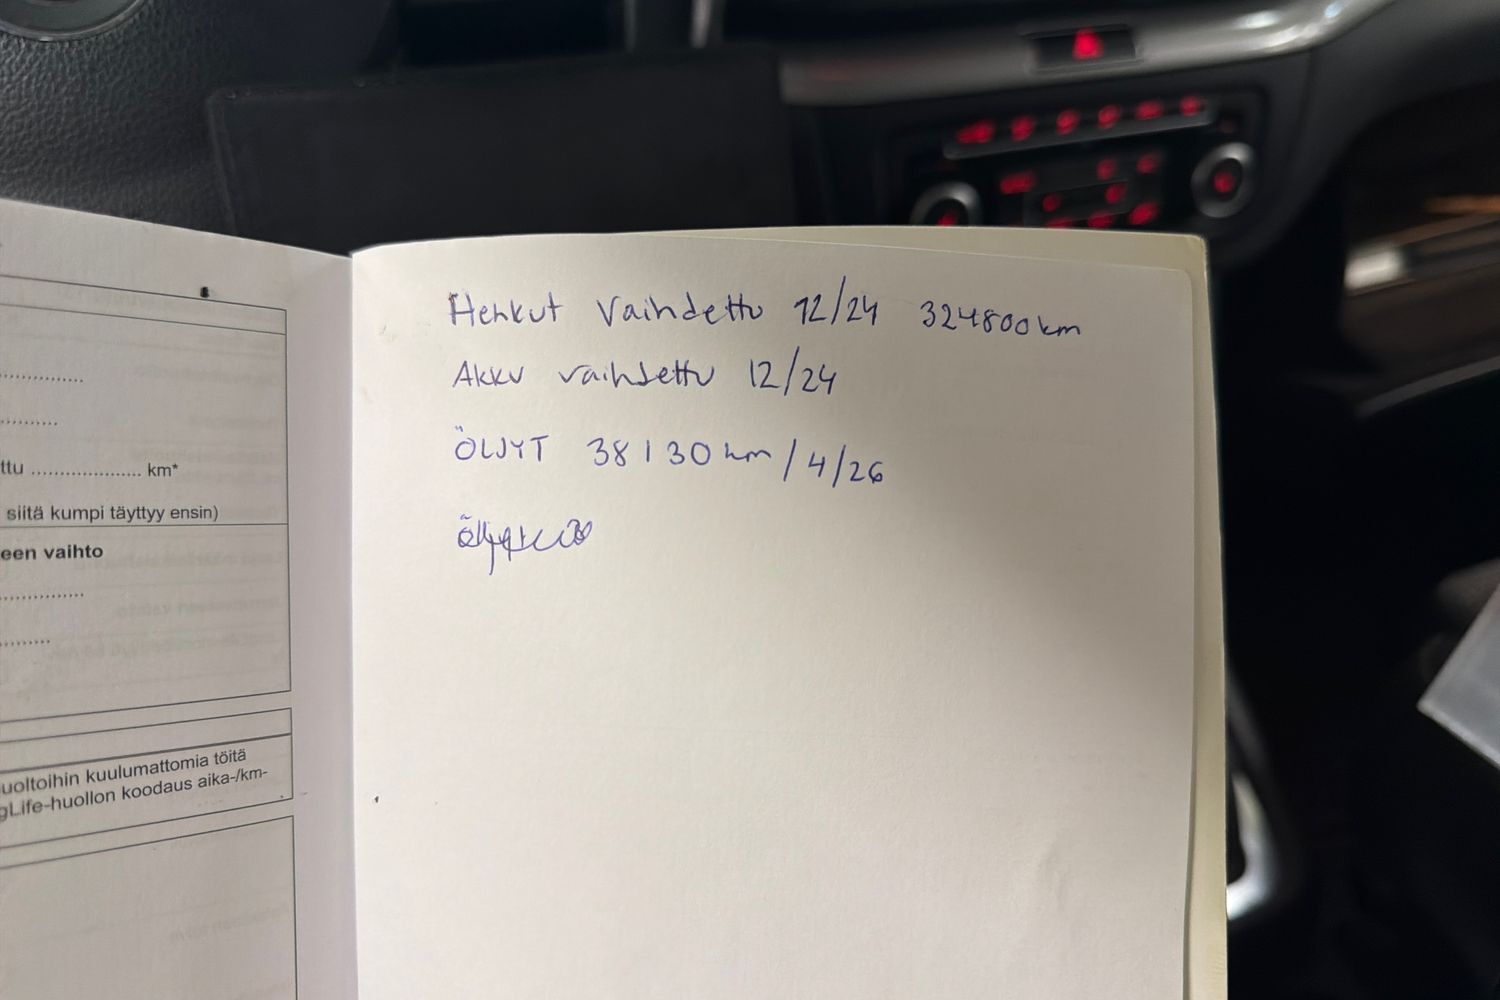 ttu .................... km*
siitä kumpi täyttyy ensin)
een vaihto
uoltoihin kuulumattomia töitä
gLife-huollon koodaus aika-/km-
Hehkut vaihdettu 12/24 324800km
Akku vaihdettu 12/24
ÖLJYT 38130km/4/26